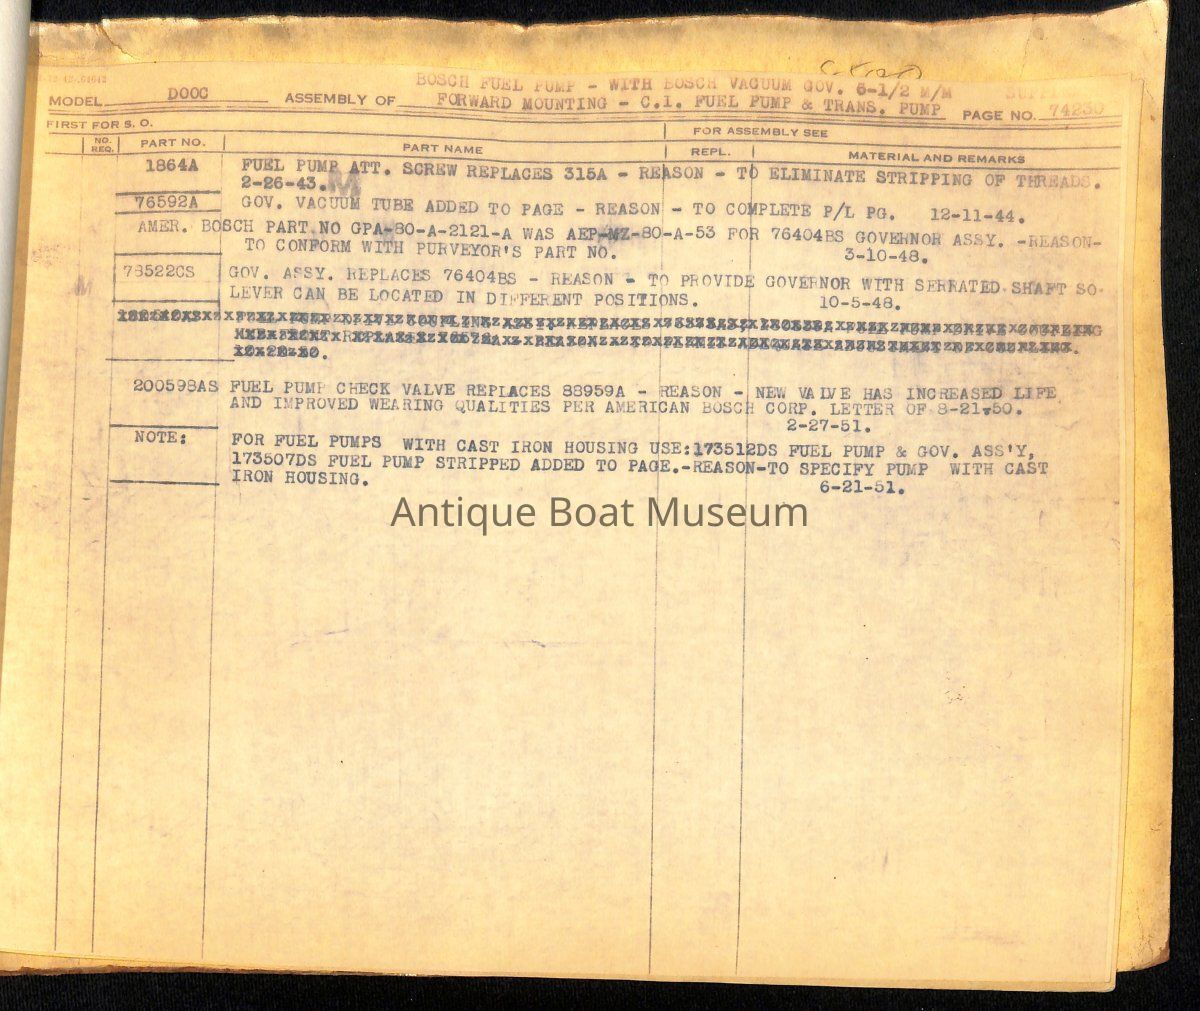 BOSCH FUEL PUMP - WITH BOSCH VACUUM GOV. 6-1/2 M/M
MODEL DOOC ASSEMBLY OF FORWARD MOUNTING - C.I. FUEL PUMP & TRANS. PUMP PAGE NO. 74230
FIRST FOR S. O. FOR ASSEMBLY SEE
NO. REQ. PART NO. PART NAME REPL. MATERIAL AND REMARKS
1864A FUEL PUMP ATT. SCREW REPLACES 315A - REASON - TO ELIMINATE STRIPPING OF THREADS.
2-26-43. M
76592A GOV. VACUUM TUBE ADDED TO PAGE - REASON - TO COMPLETE P/L PG. 12-11-44.
AMER. BOSCH PART NO GPA-80-A-2121-A WAS AEP-MZ-80-A-53 FOR 76404BS GOVERNOR ASSY. -REASON-
TO CONFORM WITH PURVEYOR'S PART NO. 3-10-48.
78522CS GOV. ASSY. REPLACES 76404BS - REASON - TO PROVIDE GOVERNOR WITH SERRATED SHAFT SO
M LEVER CAN BE LOCATED IN DIFFERENT POSITIONS. 10-5-48.
200598AS FUEL PUMP CHECK VALVE REPLACES 88959A - REASON - NEW VALVE HAS INCREASED LIFE
AND IMPROVED WEARING QUALITIES PER AMERICAN BOSCH CORP. LETTER OF 8-21-50.
2-27-51.
NOTE: FOR FUEL PUMPS WITH CAST IRON HOUSING USE:173512DS FUEL PUMP & GOV. ASS'Y,
173507DS FUEL PUMP STRIPPED ADDED TO PAGE.-REASON-TO SPECIFY PUMP WITH CAST
IRON HOUSING. 6-21-51.
Antique Boat Museum